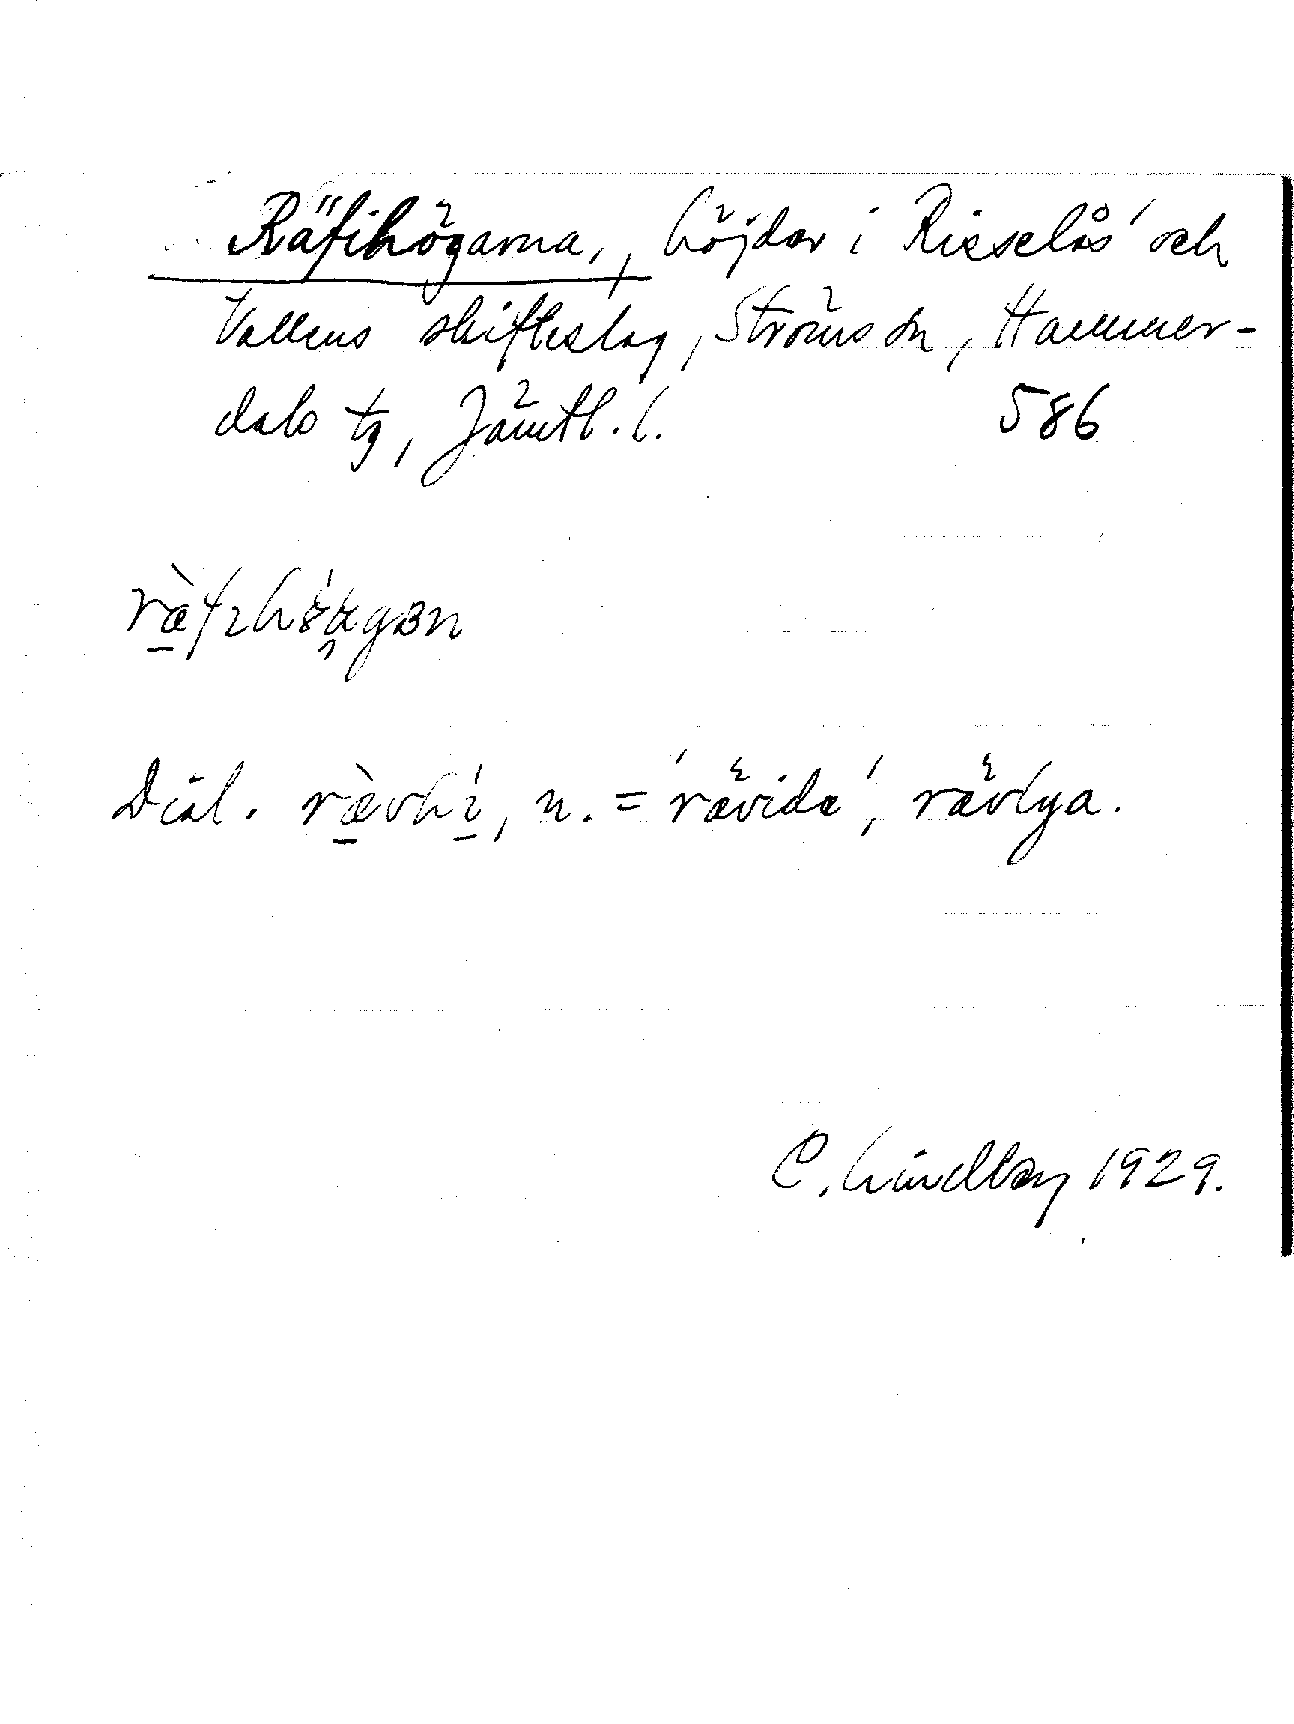 Räfihögarna, höjder i Risselås' och
Vallens skifteslag, Ströms sn, Hammer-
dals tg, Jämtl. l. 586
Dial. rævhi, n. = 'rävide', rävlya.
C. Lindberg 1929.